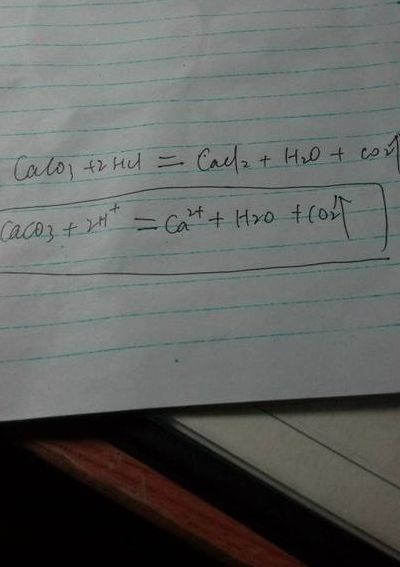 CaCO3 + 2HCl = CaCl2 + H2O + CO2↑
CaCO3 + 2H+ = Ca2+ + H2O + CO2↑